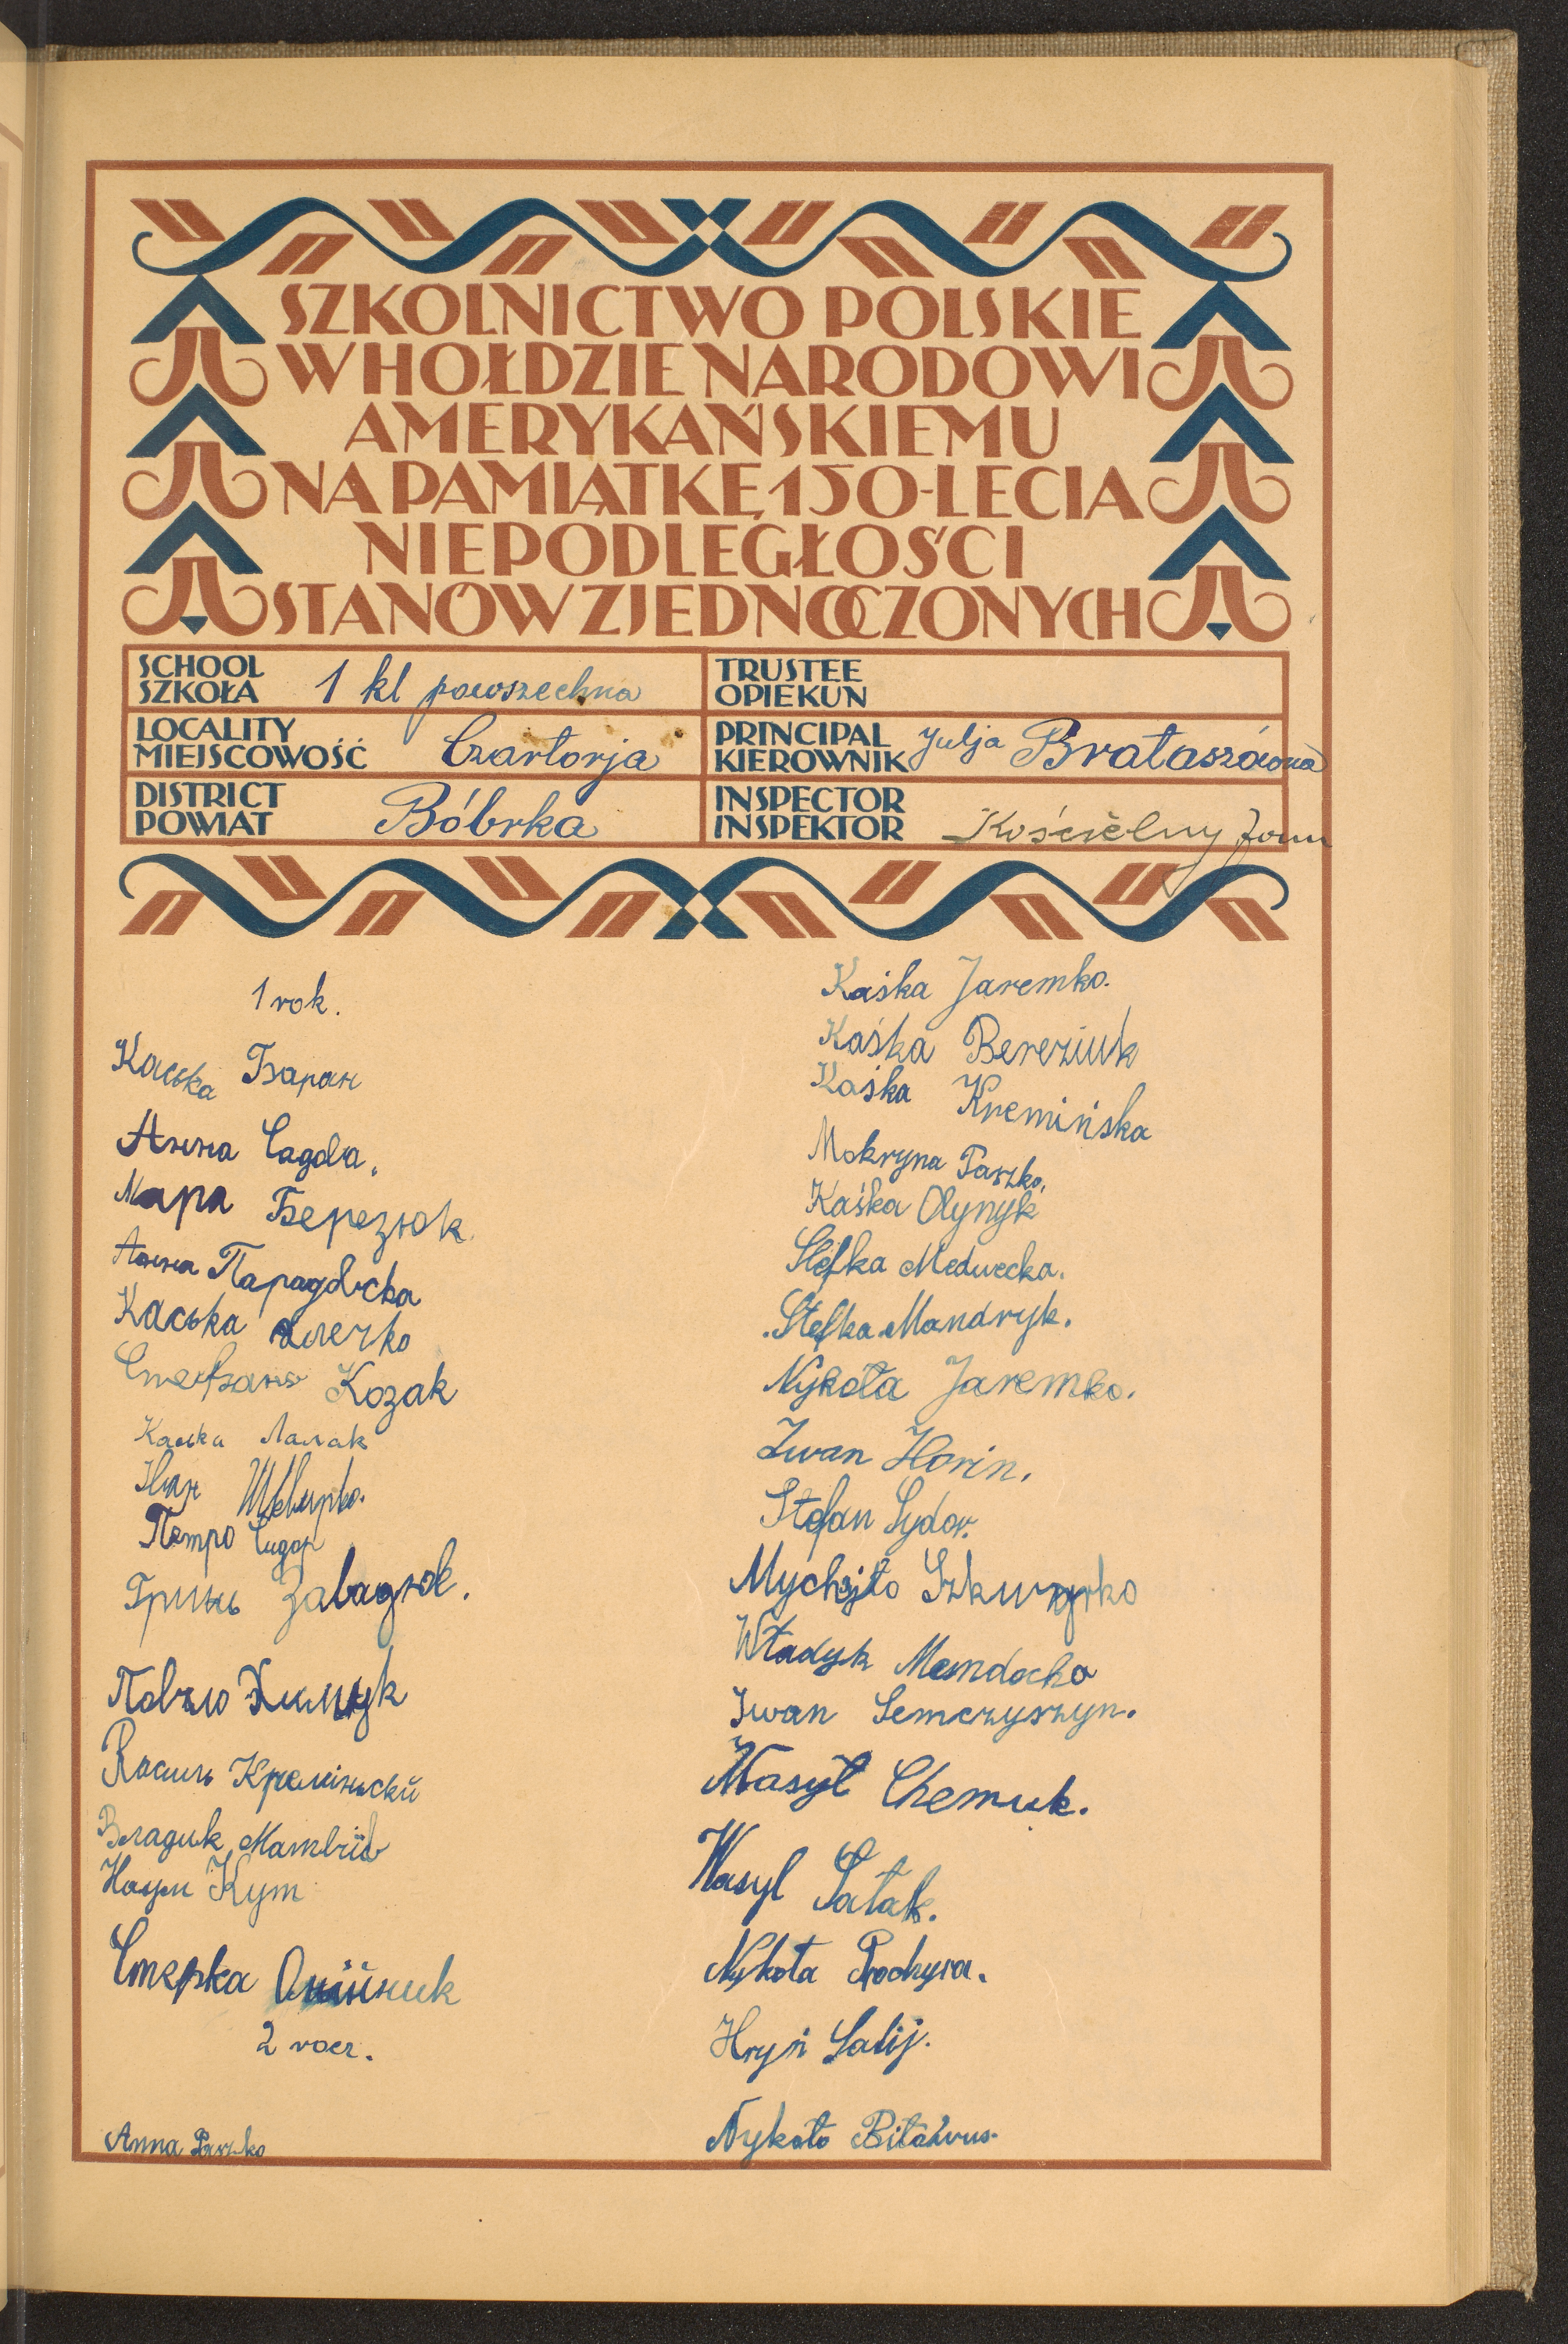 SZKOLNICTWO POLSKIE
W HOŁDZIE NARODOWI
AMERYKAŃSKIEMU
NA PAMIĄTKĘ 150-LECIA
NIEPODLEGŁOŚCI
STANÓW ZJEDNOCZONYCH
SCHOOL
SZKOŁA 1 kl powszechna
TRUSTEE
OPIEKUN
LOCALITY
MIEJSCOWOŚĆ Czartorja
PRINCIPAL
KIEROWNIK Julja Brataszówna
DISTRICT
POWIAT Bóbrka
INSPECTOR
INSPEKTOR Kościelny
1 rok.
Каська Баран
Анна
Мария Березюк.
Анна
Каська
Козак
Каська
Іван
Петро Сидор
Гринь
Павло
Василь Креміньский
Владик Матвіїв
Наум Кут
Стефка
2
Anna Paszko
Kaśka Jaremko.
Kaśka Bereziuk
Kaśka Kremińska
Mokryna Paszko.
Kaśka Olynyk
Stefka Medwecka.
Stefka Mandryk.
Nykoła Jaremko.
Iwan Horin.
Stefan Sydor.
Mychajło Szkwyrko
Władyk
Iwan Semczyszyn.
Wasyl
Wasyl Łatak.
Nykoła Prochyra.
Hryń Salij.
Nykoła